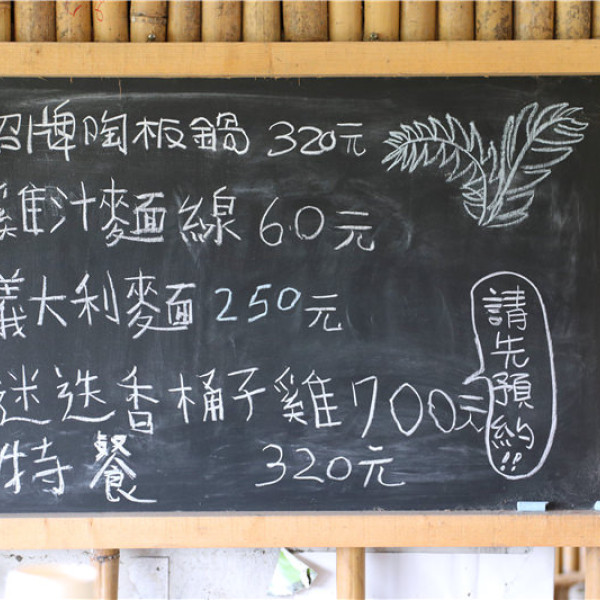 招牌陶板鍋 320元
雞汁麵線 60元
義大利麵 250元
迷迭香桶子雞 700元
請先預約!!
特餐 320元